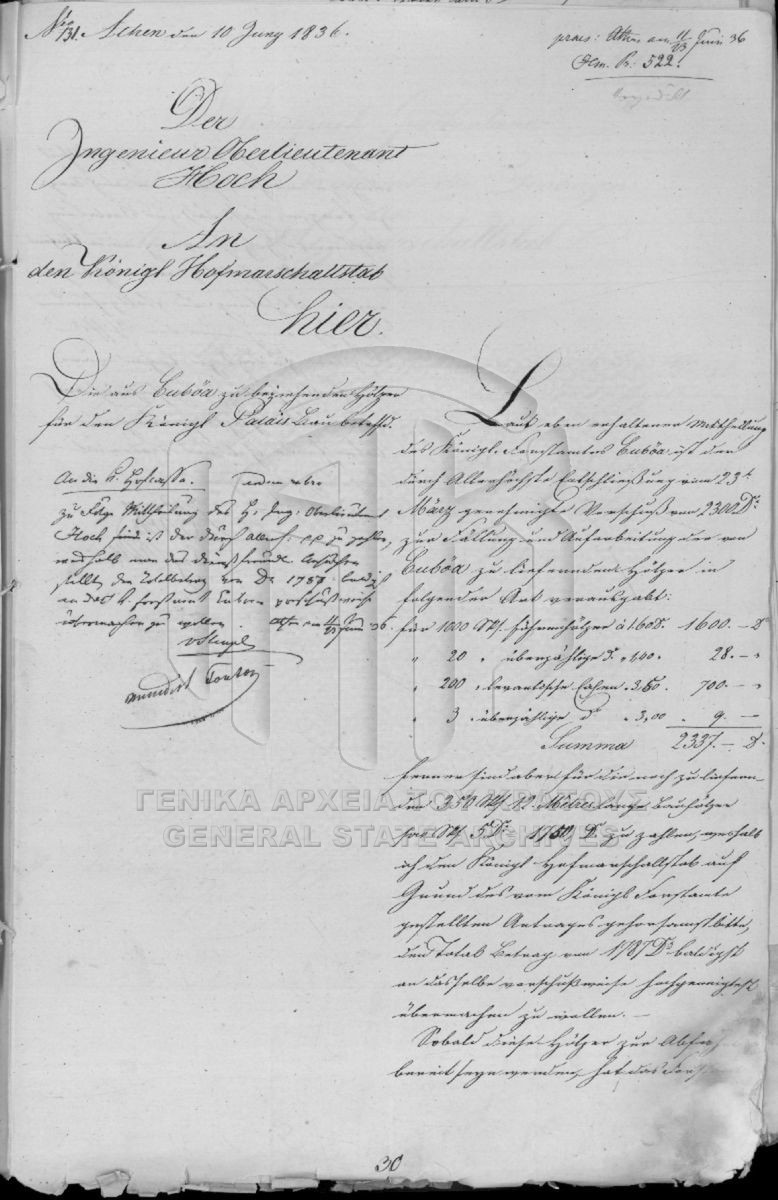 No 131. Athen den 10 Juny 1836.
praes: Athen am 11/23 Juni 36
Exm. No: 522.
Der
Ingenieur Oberlieutenant
Hoch
An
den Königl Hofmarschallstab
hier.
Die aus Euböa zu beziehenden Hölzer
für den Königl Palais Bau betreffd.
An die k. Hofcassa.
zu Folge Mittheilung des H. Ing: Oberlieutenant
Hoch ist der durch allerh:
weshalb man das
stellt, den Totalbetrag von Dr 1787 baldigst
an das k Forstamt Euboea vorschußweise
übermachen zu wollen. Athen am 11/23 Juni 36.
Laut eben erhaltener Mittheilung
des Königl. Forstamtes Euböa ist der
durch Allerhöchste Entschließung vom 23t
März genehmigte Vorschuß von 2300 Dr
zur Fällung und Aufarbeitung der von
Euböa zu liefernden Hölzer in
folgender Art verausgabt:
für 1000 Stk. Föhrenhölzer à 1.60 D. 1600. – D
" 20 " überzählige d. " 1,40 " 28. – "
" 200 " levantische " 3.50 . 700. – "
" 3 " überzählige d " 3,00 . 9. –
Summa 2337. – D.
ferner sind aber für die noch zu liefern-
den 350 Stk 12 Metres lange Bauhölzer
pro Stk 5 Dr 1750 Dr. zu zahlen, weshalb
ich den Königl Hofmarschallstab auf
Grund des vom Königl Forstamte
gestellten Antrages gehorsamst bitte,
den Total Betrag von 1787 Dr baldigst
an dasselbe vorschußweise hochgeneigtest
übermachen zu wollen. –
Sobald diese Hölzer zur
bereit seyn werden, hat das
30
ΓΕΝΙΚΑ ΑΡΧΕΙΑ ΤΟΥ ΚΡΑΤΟΥΣ
GENERAL STATE ARCHIVES